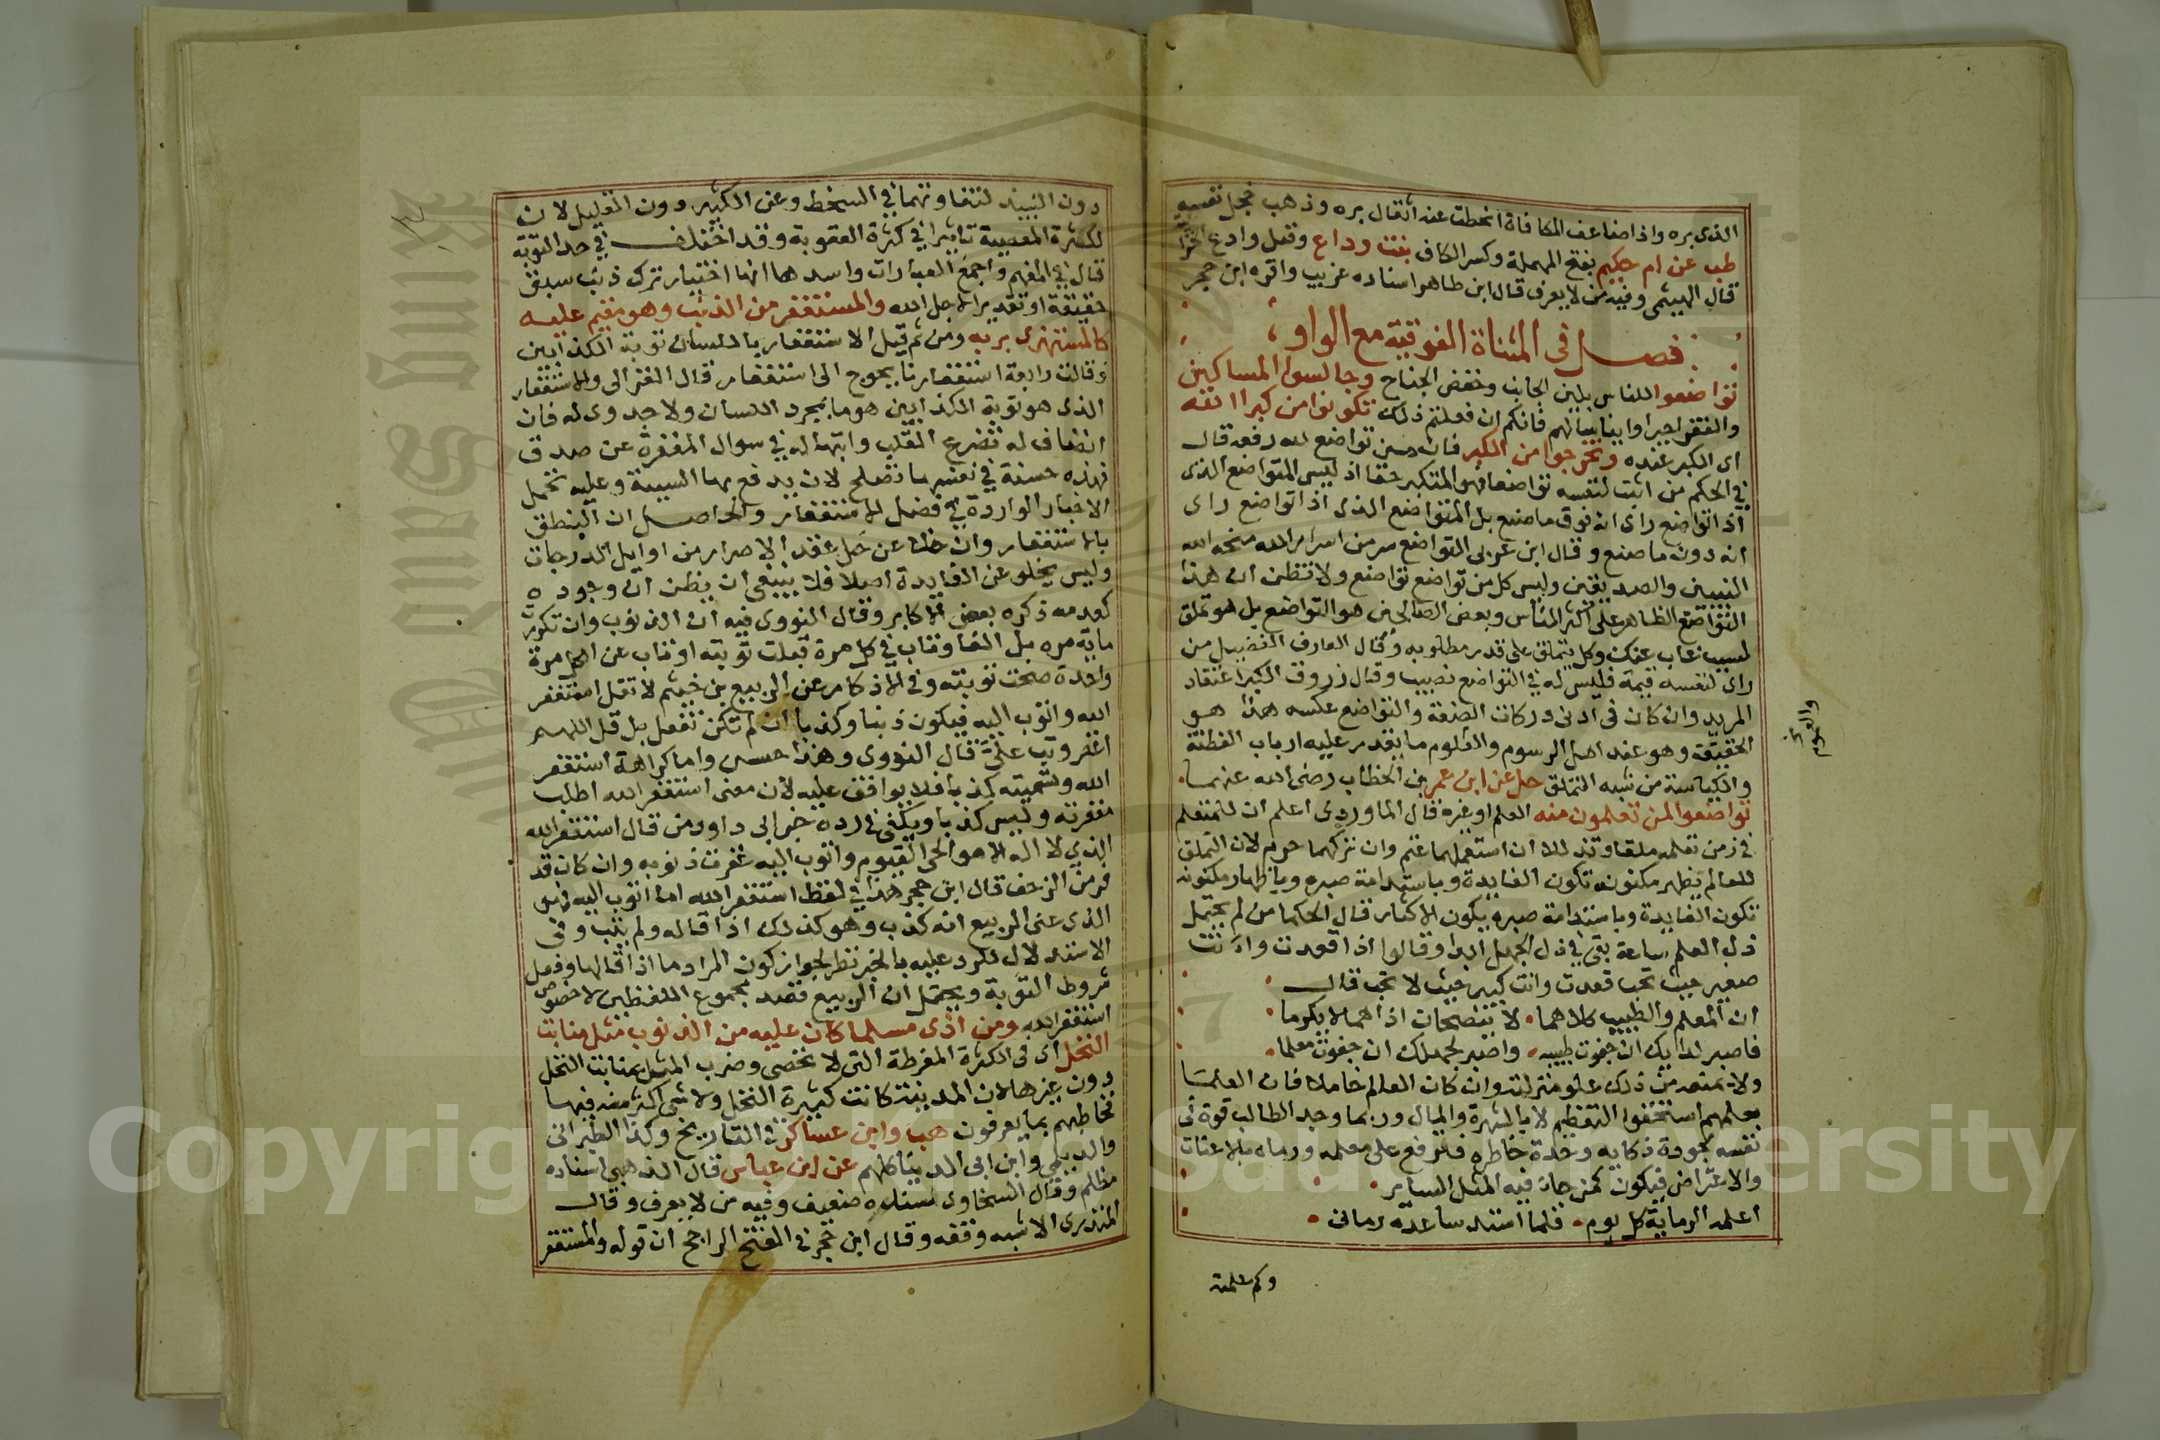 الذى بره واذا ضاعف المكافاة انحطت عنه اثقال بره وذهب خجل نفسه
طب عن ام حكيم بفتح المهملة وكسر الكاف بنت وداع وقيل وادع
قال الهيثمى وفيه من لا يعرف قال ابن طاهر اسناده غريب واقره ابن حجر
فصل فى المثناة الفوقية مع الواو
تواضعوا للناس بلين الجانب وخفض الجناح وجالسوا المساكين
والفقرا جبرا وايناسا لهم فانكم ان فعلتم ذلك تكونوا من كبرا الله
اى الكبر عنده وتخرجوا من الكبر فان من تواضع لله رفعه قال
فى الحكم من اثبت لنفسه تواضعا فهو المتكبر حقا اذ ليس المتواضع الذى
اذا تواضع راى انه فوق ما صنع بل المتواضع الذى اذا تواضع راى
انه دون ما صنع وقال ابن عربى التواضع سر من اسرار الله منحه الله
النبيين والصديقين وليس كل من تواضع تواضع ولا تظن ان هذا
التواضع الظاهر على اكثر الناس وبعض الصالحين هو التواضع بل هو تملق
لسبب غاب عنك وكل يتملق على قدر مطلوبه وقال العارف الفضيل من
راى لنفسه قيمة فليس له فى التواضع نصيب وقال زروق الكبر اعتقاد
المزيد وان كان فى ادنى دركات الضعة والتواضع عكسه هذا هو
الحقيقة وهو عند اهل الرسوم والعلوم ما يقدر عليه ارباب الفطنة
والعموم
والكياسة من شبه التملق حل عن ابن عمر بن الخطاب رضى الله عنهما
تواضعوا لمن تعلمون منه العلم او غيره قال الماوردى اعلم ان للمتعلم
فى زمن تعلمه ملقا وتذللا ان استعملهما غنم وان تركهما حرم لان التملق
للعالم يظهر مكنونه تكون الفايدة وباستدامة صبره وباظهار مكنونه
تكون الفايدة وباستدامة صبره يكون الاكثار قال الحكما من لم يحتمل
ذل العلم ساعة بقى فى ذل الجهل ابدا وقالوا اذا قعدت وانت
صغير حيث تحب قعدت وانت كبير حيث لا تحب قال
ان المعلم والطبيب كلاهما لا ينصحان اذا هما لم يكرما
فاصبر لدايك ان جفوت طبيبه واصبر لجهلك ان جفوت معلما
ولا يمنعه من ذلك علو منزلته وان كان العالم خاملا فان العلما
بعلمهم استحقوا التعظيم لا بالشهرة والمال وربما وجد الطالب قوة فى
نفسه بجودة ذكايه وحدة خاطره فترفع على معلمه ورماه بالاعنات
والاعتراض فيكون كمن جاء فيه المثل الساير
اعلمه الرماية كل يوم فلما استد ساعده رمانى
وكم علمته
دون لتفاوتهما فى السخط وعن الكثير دون القليل لان
لكثرة المعصية تاثيرا فى كثرة العقوبة وقد اختلف فى حد التوبة
قال فى المفهم واجمع العبارات واسدها انها اختيار ترك ذنب سبق
حقيقة او تقديرا لاجل الله والمستغفر من الذنب وهو مقيم عليه
كالمستهزى بربه ومن ثم قيل الاستغفار باللسان توبة الكذابين
وقالت رابعة استغفارنا يحوج الى استغفار قال الغزالى والاستغفار
الذى هو توبة الكذابين هو ما بمجرد اللسان ولا جدوى له فان
انضاف له تضرع القلب وابتهاله فى سوال المغفرة عن صدق
فهذه حسنة فى نفسها تصلح لان يدفع بها السيئة وعليه تحمل
الاخبار الواردة فى فضل الاستغفار والحاصل ان النطق
بالاستغفار وان خلا عن حل عقد الاصرار من اوايل الدرجات
وليس يخلو عن الفايدة اصلا فلا ينبغى ان يظن ان وجوده
كعدمه ذكره بعض الاكابر وقال النووى فيه ان الذنوب وان تكررت
ماية مره بل الفا وتاب فى كل مرة قبلت توبته او تاب عن الكل مرة
واحدة صحت توبته وفى الاذكار عن الربيع بن خيثم لا تقل استغفر
الله واتوب اليه فيكون ذنبا وكذبا ان لم تكن تفعل بل قل اللهم
اغفر وتب على قال النووى وهذا حسن واما كراهة استغفر
الله وتسميته كذبا فلا يوافق عليه لان معنى استغفر الله اطلب
مغفرته وليس كذبا ويكفى فى رده خبر ابى داود من قال استغفر الله
الذى لا اله الا هو الحى القيوم واتوب اليه غفرت ذنوبه وان كان قد
فر من الزحف قال ابن حجر هذا فى لفظ استغفر الله اما اتوب اليه فهو
الذى عنى الربيع انه كذب وهو كذلك اذا قاله ولم يتب وفى
الاستدلال للرد عليه بالخبر نظر لجواز كون المراد ما اذا قالها وفعل
شروط التوبة ويحتمل ان الربيع قصد مجموع اللفظين لا خصوص
استغفر الله ومن اذى مسلما كان عليه من الذنوب مثل منابت
النخل اى فى الكثرة المفرطة التى لا تحصى وضرب المثل بمنابت النخل
دون غيرها لان المدينة كانت كثيرة النخل ولا شى اكثر منه فيها
فخاطبهم بما يعرفون هب وابن عساكر فى التاريخ وكذا الطبرانى
والديلمى وابن ابى الدنيا كلهم عن ابن عباس قال الذهبى اسناده
مظلم وقال السخاوى سنده ضعيف وفيه من لا يعرف وقال
المنذرى الاشبه وقفه وقال ابن حجر فى الفتح الراجح ان قوله والمستغفر
Copyright Saud University